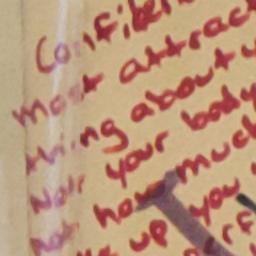 Confiden
most attract
thing about y
Not your body
not how much
up you